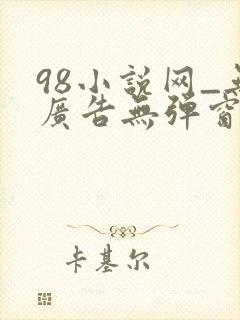 98小説网_
廣告無彈窗
卡基尔